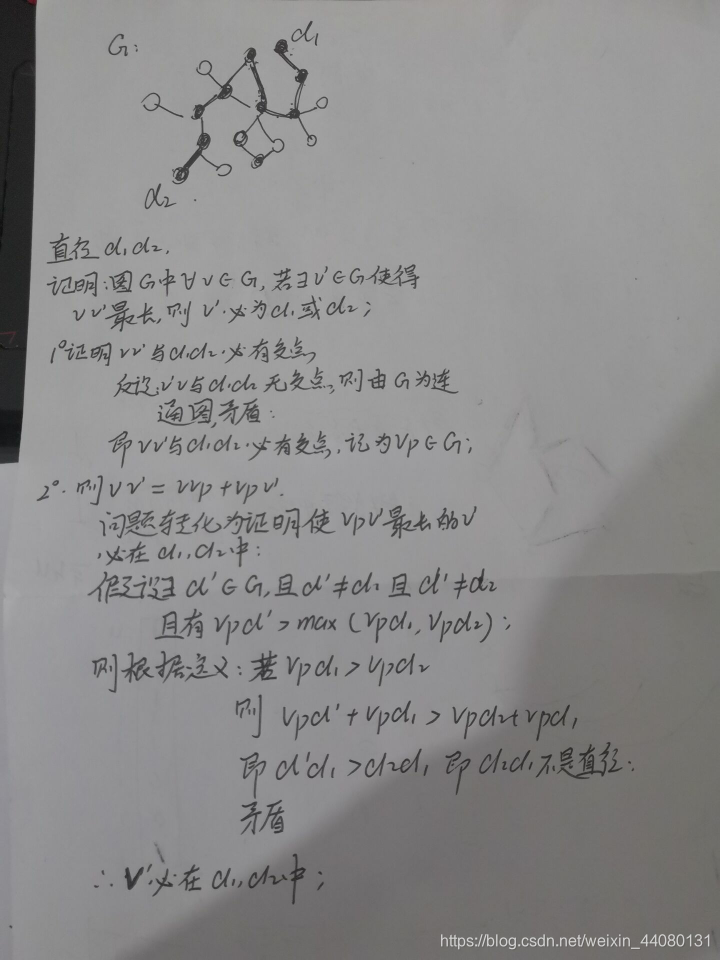 G:
d1
d2
直径 d1d2,
证明:图G中∀v∈G,若∃v'∈G使得
vv'最长,则 v'必为d1或d2;
1°证明 vv'与d1d2必有交点,
反设:v'v与d1d2无交点,则由G为连
通图,矛盾:
即vv'与d1d2必有交点,记为vp∈G;
2°. 则vv' = vvp + vpv'.
问题转化为证明使vpv'最长的v'
必在d1,d2中:
假设∃ d'∈G,且d'≠d1 且 d'≠d2
且有 vpd' > max (vpd1, vpd2);
则根据定义:若 vpd1 > vpd2
则 vpd' + vpd1 > vpd2+vpd1
即 d'd1 > d2d1 即 d2d1不是直径:
矛盾
∴ v'必在d1,d2中;
https://blog.csdn.net/weixin_44080131